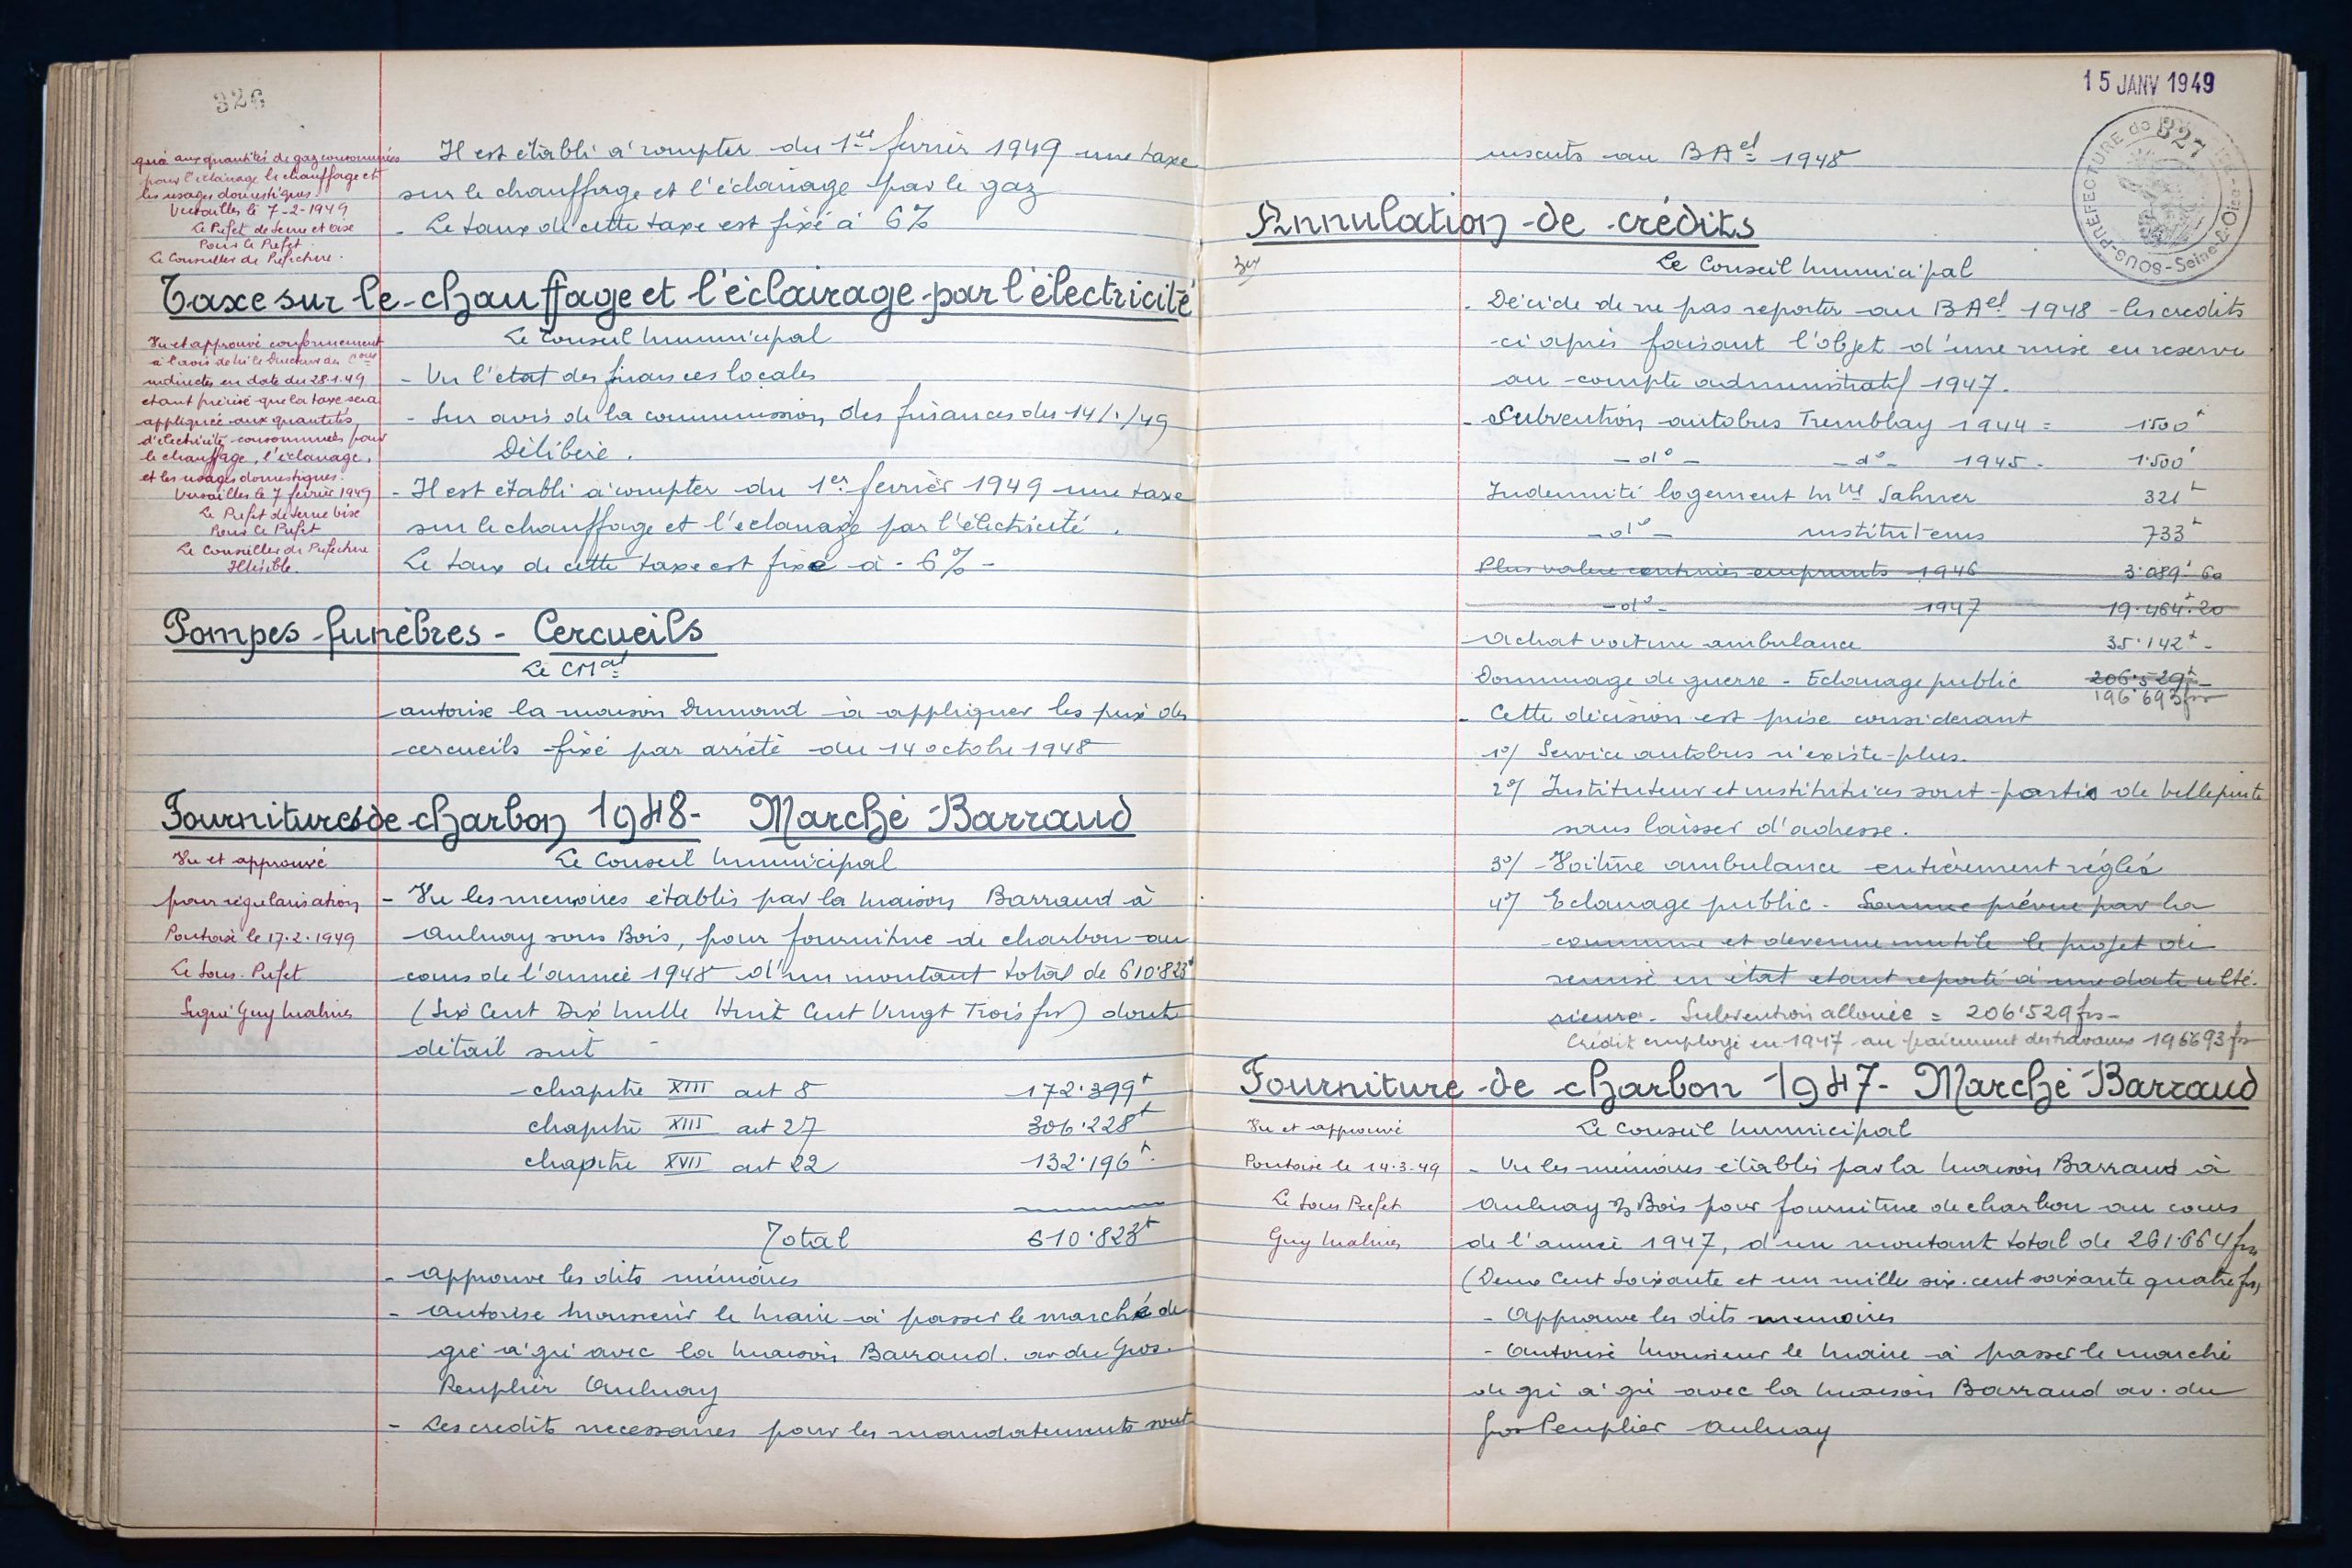 326
qu'aux quantités de gaz consommées
pour l'éclairage le chauffage et
les usages domestiques.
Versailles le 7-2-1949
Le Préfet de Seine et Oise
Pour le Préfet.
Le Conseiller de Préfecture.
Il est établi à compter du 1er février 1949 une taxe
sur le chauffage et l'éclairage par le gaz
- Le taux de cette taxe est fixé à 6%
Taxe sur le chauffage et l'éclairage par l'électricité
Vu et approuvé conformément
à l'avis de Mr le Directeur des Cons
indirectes en date du 28.1.49
étant précisé que la taxe sera
appliquée aux quantités
d'électricité consommées pour
le chauffage, l'éclairage,
et les usages domestiques.
Versailles le 7 février 1949
Le Préfet de Seine Oise
Pour le Préfet
Le Conseiller de Préfecture
Illisible.
Le Conseil Municipal
- Vu l'état des finances locales
- Sur avis de la commission des finances du 14/1/49
Délibère.
- Il est établi à compter du 1er février 1949 une taxe
sur le chauffage et l'éclairage par l'électricité.
Le taux de cette taxe est fixé à - 6% -
Pompes funèbres - Cercueils
Le CMal
autorise la maison Dumand à appliquer les prix des
cercueils fixé par arrêté du 14 octobre 1948
Fournitures de charbon 1948 - Marché Barraud
Vu et approuvé
pour régularisation
Pontoise le 17.2.1949
Le Sous-Préfet
Signé Guy Malines
Le Conseil Municipal
- Vu les mémoires établis par la Maison Barraud à
Aulnay sous Bois, pour fourniture de charbon au
cours de l'année 1948 d'un montant total de 610.823f
(Six Cent Dix Mille Huit Cent Vingt Trois frs) dont
détail suit -
- chapitre XIII art 8 172.399f
chapitre XIII art 27 306.228f
chapitre XVII art 22 132.196f.
Total 610.823f
- approuve les dits mémoires
- autorise Monsieur le Maire à passer le marché de
gré à gré avec la Maison Barraud. av du Gros.
Peuplier Aulnay
- Les crédits nécessaires pour les mandatements sont
15 JANV 1949
327
SOUS-PRÉFECTURE de Pontoise - Seine-&-Oise
inscrits au BAel 1948
Annulation de crédits
Le Conseil Municipal
- Décide de ne pas reporter au BAel 1948 - les crédits
ci après faisant l'objet d'une mise en réserve
au compte administratif 1947.
- Subvention autobus Tremblay 1944 = 1500f
- d° - - d° - 1945 - 1.500f
Indemnité logement Mme Sahner 321f
- d° - instituteurs 733f
Plus value centimes emprunts 1946 3.089f 60
- d° - 1947 19.464f.20
Achat voiture ambulance 35.142f -
Dommage de guerre - Eclairage public 206.529f -
196.693frs
- Cette décision est prise considérant
1°/ Service autobus n'existe plus.
2°/ Instituteur et institutrices sont partis de villepinte
sans laisser d'adresse.
3°/ - Voiture ambulance entièrement réglée
4°/ Eclairage public - Somme prévue par la
commune et devenue inutile le projet de
remise en état étant reporté à une date ulté-
rieure. Subvention allouée = 206.529 frs -
Crédit employé en 1947 au paiement des travaux 196693 frs
Fourniture de charbon 1947 - Marché Barraud
Vu et approuvé
Pontoise le 14.3.49
Le Sous Préfet
Guy Malines
Le Conseil Municipal
- Vu les mémoires établis par la Maison Barraud à
Aulnay s Bois pour fourniture de charbon au cours
de l'année 1947, d'un montant total de 261.664 frs
(Deux Cent Soixante et un mille six cent soixante quatre frs)
- Approuve les dits mémoires
- Autorise Monsieur le Maire à passer le marché
de gré à gré avec la Maison Barraud av. du
gros Peuplier Aulnay